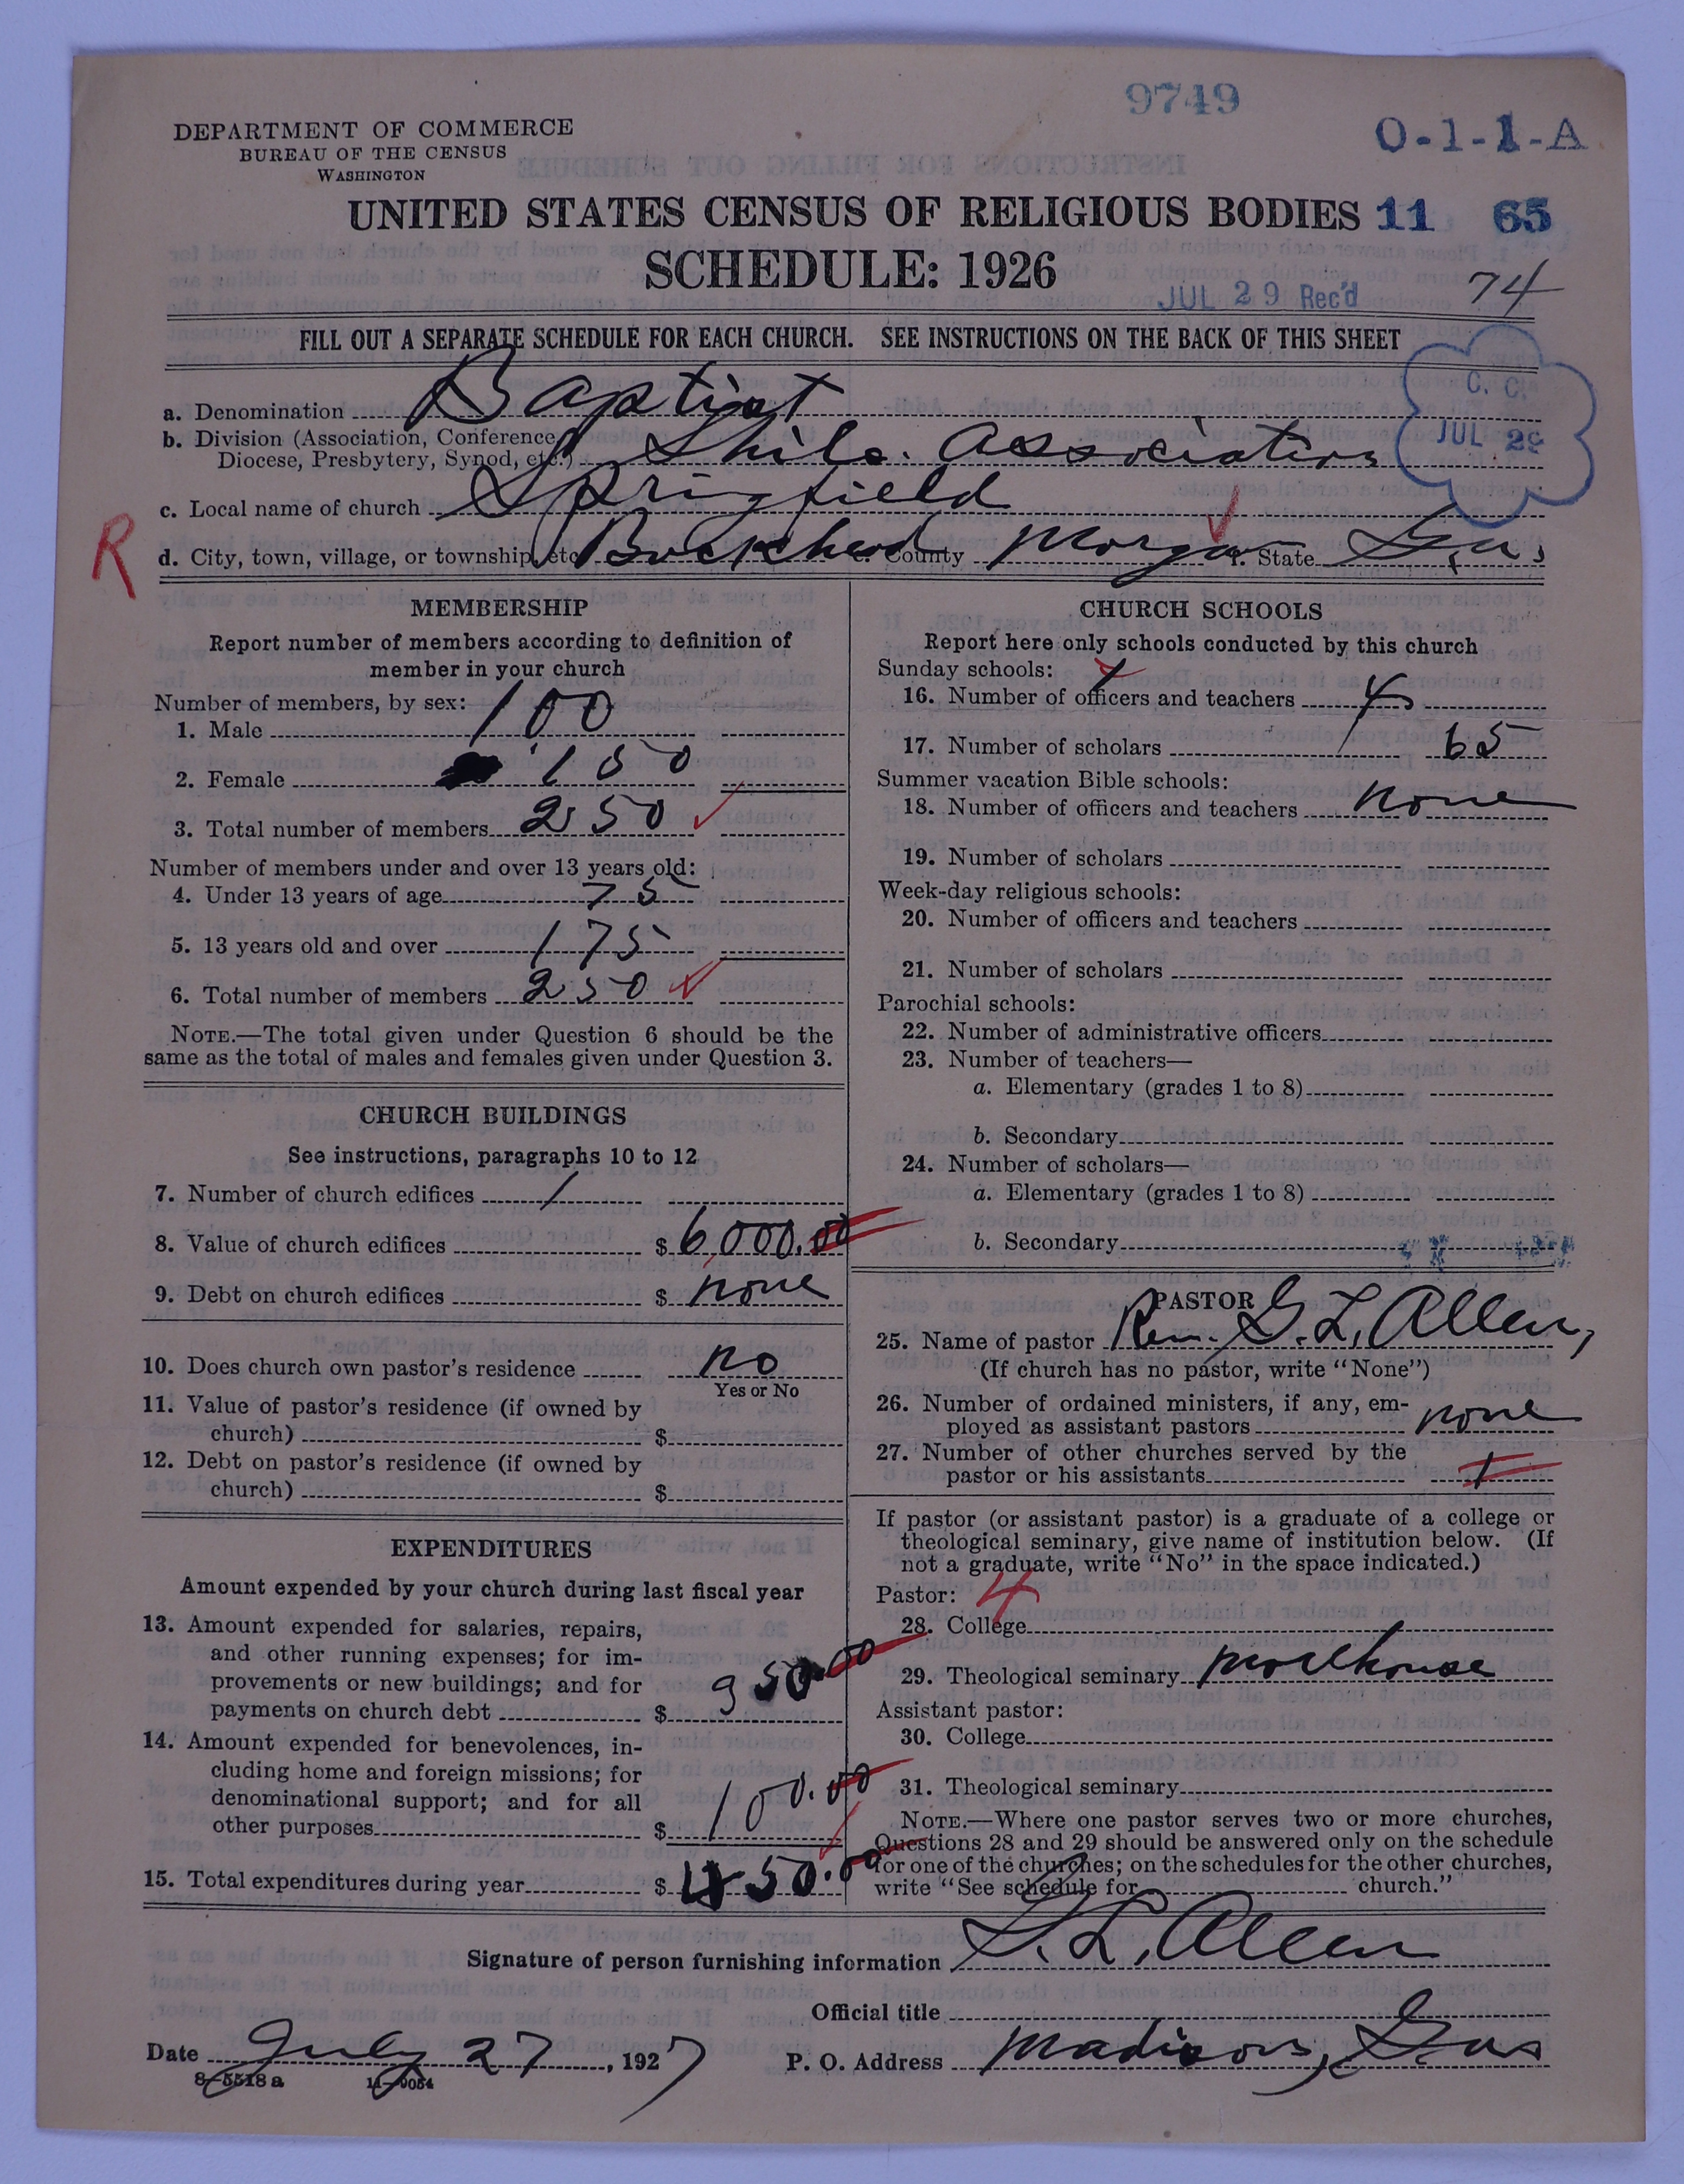 9749
DEPARTMENT OF COMMERCE
BUREAU OF THE CENSUS
WASHINGTON
O-1-1-A
UNITED STATES CENSUS OF RELIGIOUS BODIES 11 65
SCHEDULE: 1926
JUL 29 Rec'd 74
FILL OUT A SEPARATE SCHEDULE FOR EACH CHURCH. SEE INSTRUCTIONS ON THE BACK OF THIS SHEET
C. C.
JUL 29
a. Denomination Baptist
b. Division (Association, Conference,
Diocese, Presbytery, Synod, etc.) Shilo. Association
c. Local name of church Springfield
R
d. City, town, village, or township, etc. Buckhead e. County Morgan f. State Ga.
MEMBERSHIP
Report number of members according to definition of
member in your church
Number of members, by sex:
1. Male 100
2. Female 150
3. Total number of members 250
Number of members under and over 13 years old:
4. Under 13 years of age 75
5. 13 years old and over 175
6. Total number of members 250
NOTE.—The total given under Question 6 should be the
same as the total of males and females given under Question 3.
CHURCH BUILDINGS
See instructions, paragraphs 10 to 12
7. Number of church edifices 1
8. Value of church edifices $ 6,000.00
9. Debt on church edifices $ none
10. Does church own pastor's residence no
Yes or No
11. Value of pastor's residence (if owned by
church) $
12. Debt on pastor's residence (if owned by
church) $
EXPENDITURES
Amount expended by your church during last fiscal year
13. Amount expended for salaries, repairs,
and other running expenses; for im-
provements or new buildings; and for
payments on church debt $ 950.00
14. Amount expended for benevolences, in-
cluding home and foreign missions; for
denominational support; and for all
other purposes $ 100.00
15. Total expenditures during year $ 50.00
CHURCH SCHOOLS
Report here only schools conducted by this church
Sunday schools:
16. Number of officers and teachers
17. Number of scholars 65
Summer vacation Bible schools:
18. Number of officers and teachers none
19. Number of scholars
Week-day religious schools:
20. Number of officers and teachers
21. Number of scholars
Parochial schools:
22. Number of administrative officers
23. Number of teachers—
a. Elementary (grades 1 to 8)
b. Secondary
24. Number of scholars—
a. Elementary (grades 1 to 8)
b. Secondary
PASTOR
25. Name of pastor Rev. G. L. Allen,
(If church has no pastor, write "None")
26. Number of ordained ministers, if any, em-
ployed as assistant pastors none
27. Number of other churches served by the
pastor or his assistants 1
If pastor (or assistant pastor) is a graduate of a college or
theological seminary, give name of institution below. (If
not a graduate, write "No" in the space indicated.)
Pastor: 4
28. College
29. Theological seminary Morehouse
Assistant pastor:
30. College
31. Theological seminary
NOTE.—Where one pastor serves two or more churches,
Questions 28 and 29 should be answered only on the schedule
for one of the churches; on the schedules for the other churches,
write "See schedule for church."
Signature of person furnishing information G. L. Allen
Official title
Date July 27, 1927 P. O. Address Madison, Ga
8-5518a 11-9054